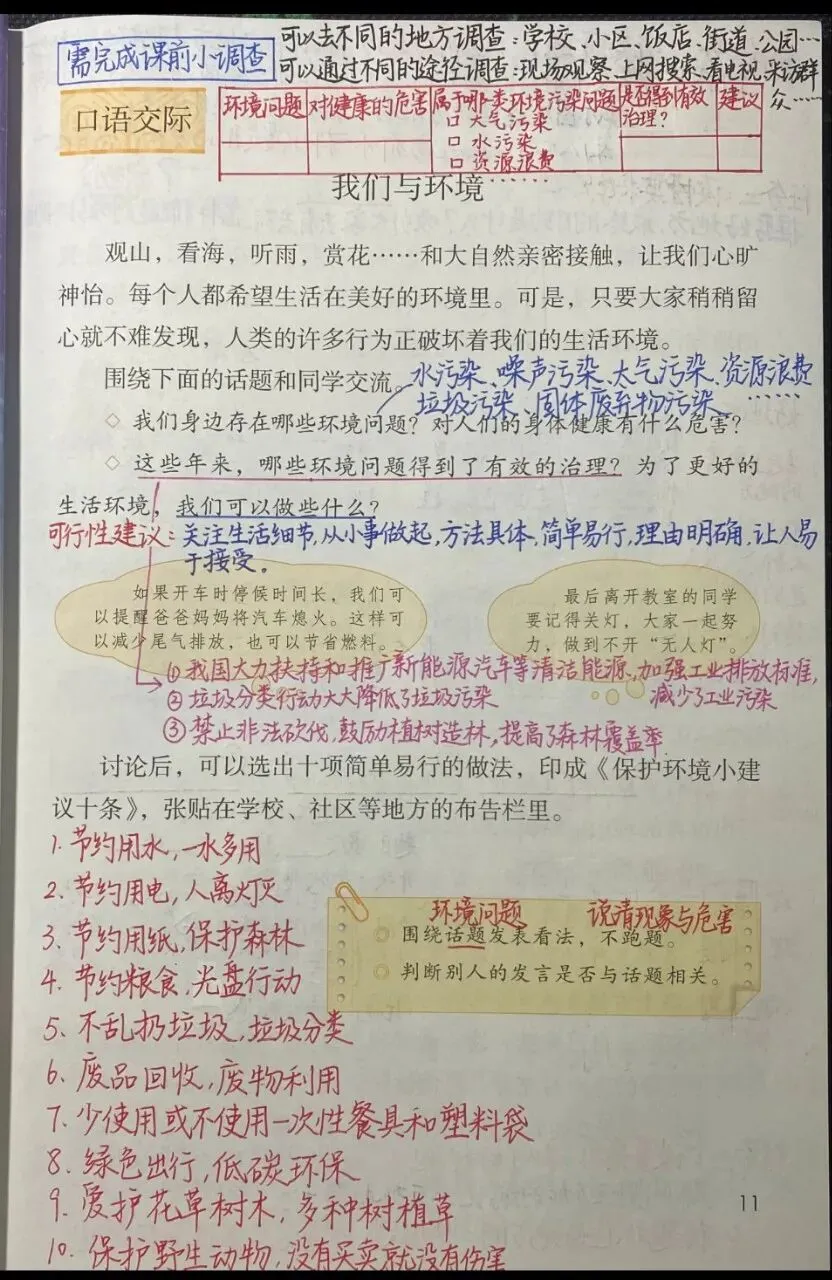 需完成课前小调查
可以去不同的地方调查:学校、小区、饭店、街道、公园……
可以通过不同的途径调查:现场观察、上网搜索、看电视、采访群
众……
口语交际
环境问题 对健康的危害 属于哪类环境污染问题 是否得到有效治理? 建议
□ 大气污染
□ 水污染
□ 资源浪费
……
我们与环境
观山,看海,听雨,赏花……和大自然亲密接触,让我们心旷
神怡。每个人都希望生活在美好的环境里。可是,只要大家稍稍留
心就不难发现,人类的许多行为正破坏着我们的生活环境。
围绕下面的话题和同学交流。
水污染、噪声污染、大气污染、资源浪费
垃圾污染、固体废弃物污染、……
◇ 我们身边存在哪些环境问题?对人们的身体健康有什么危害?
◇ 这些年来,哪些环境问题得到了有效的治理?为了更好的
生活环境,我们可以做些什么?
可行性建议:关注生活细节,从小事做起,方法具体,简单易行,理由明确,让人易
于接受。
如果开车时停候时间长,我们可
以提醒爸爸妈妈将汽车熄火。这样可
以减少尾气排放,也可以节省燃料。
最后离开教室的同学
要记得关灯,大家一起努
力,做到不开“无人灯”。
①我国大力扶持和推广新能源汽车等清洁能源,加强工业排放标准,
减少了工业污染
②垃圾分类行动大大降低了垃圾污染
③禁止非法砍伐,鼓励植树造林,提高了森林覆盖率
讨论后,可以选出十项简单易行的做法,印成《保护环境小建
议十条》,张贴在学校、社区等地方的布告栏里。
1. 节约用水,一水多用
2. 节约用电,人离灯灭
3. 节约用纸,保护森林
4. 节约粮食,光盘行动
5. 不乱扔垃圾,垃圾分类
6. 废品回收,废物利用
7. 少使用或不使用一次性餐具和塑料袋
8. 绿色出行,低碳环保
9. 爱护花草树木,多种树植草
10. 保护野生动物,没有买卖就没有伤害
环境问题 说清现象与危害
围绕话题发表看法,不跑题。
判断别人的发言是否与话题相关。
11